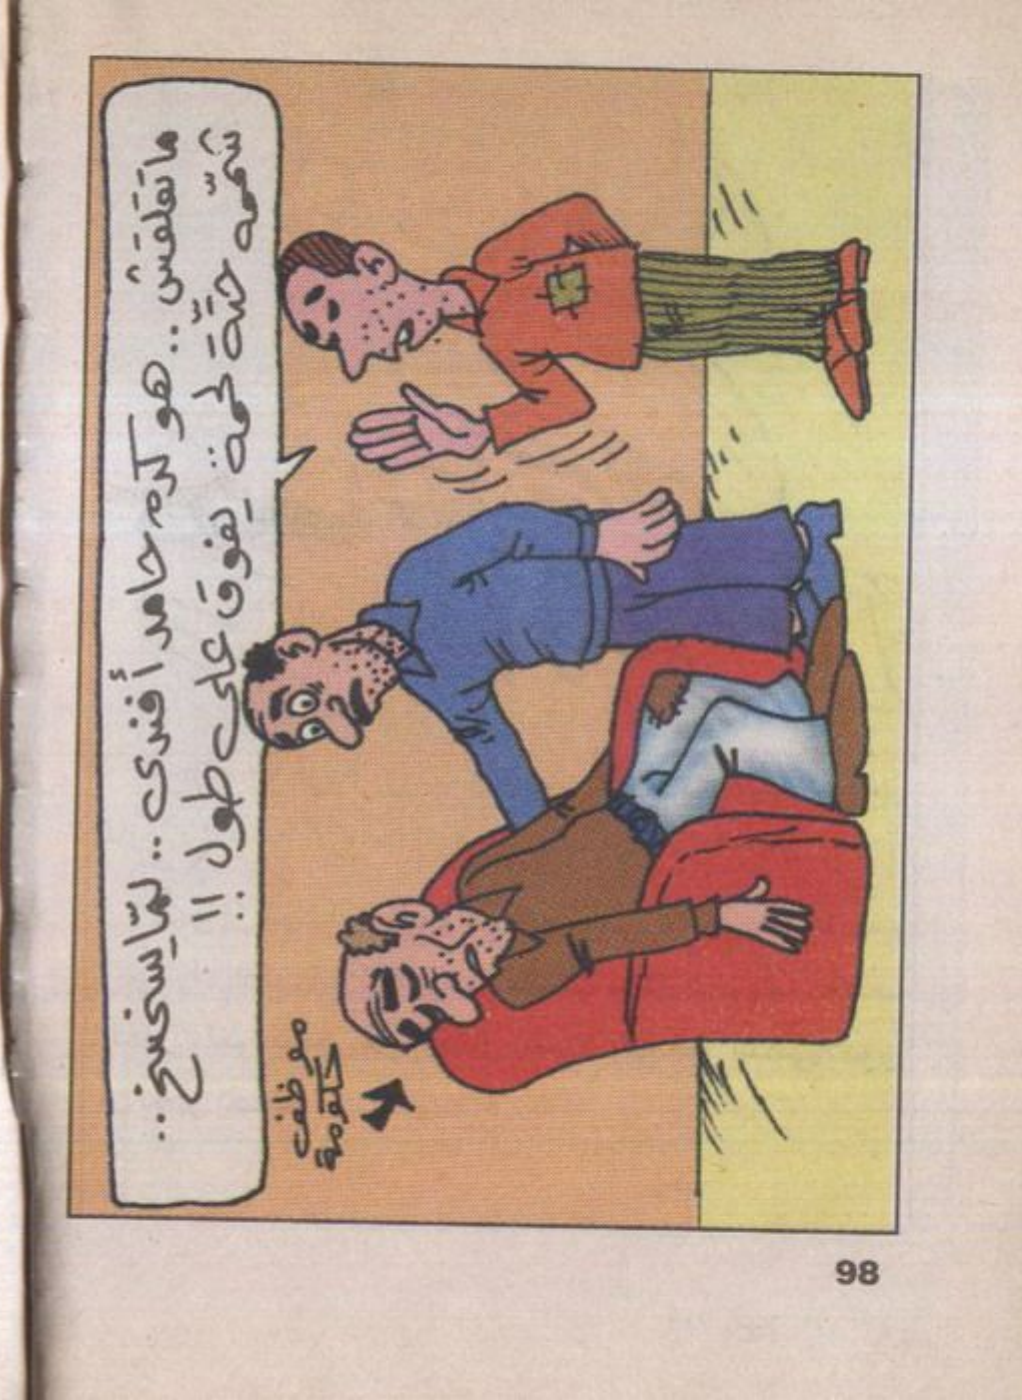 ماتقلقش.. هو كده حامد أفندى.. لمّا يسخسخ..
شمّمه حتّة لحمة يفوق على طول !!
موظف
حكومة
98